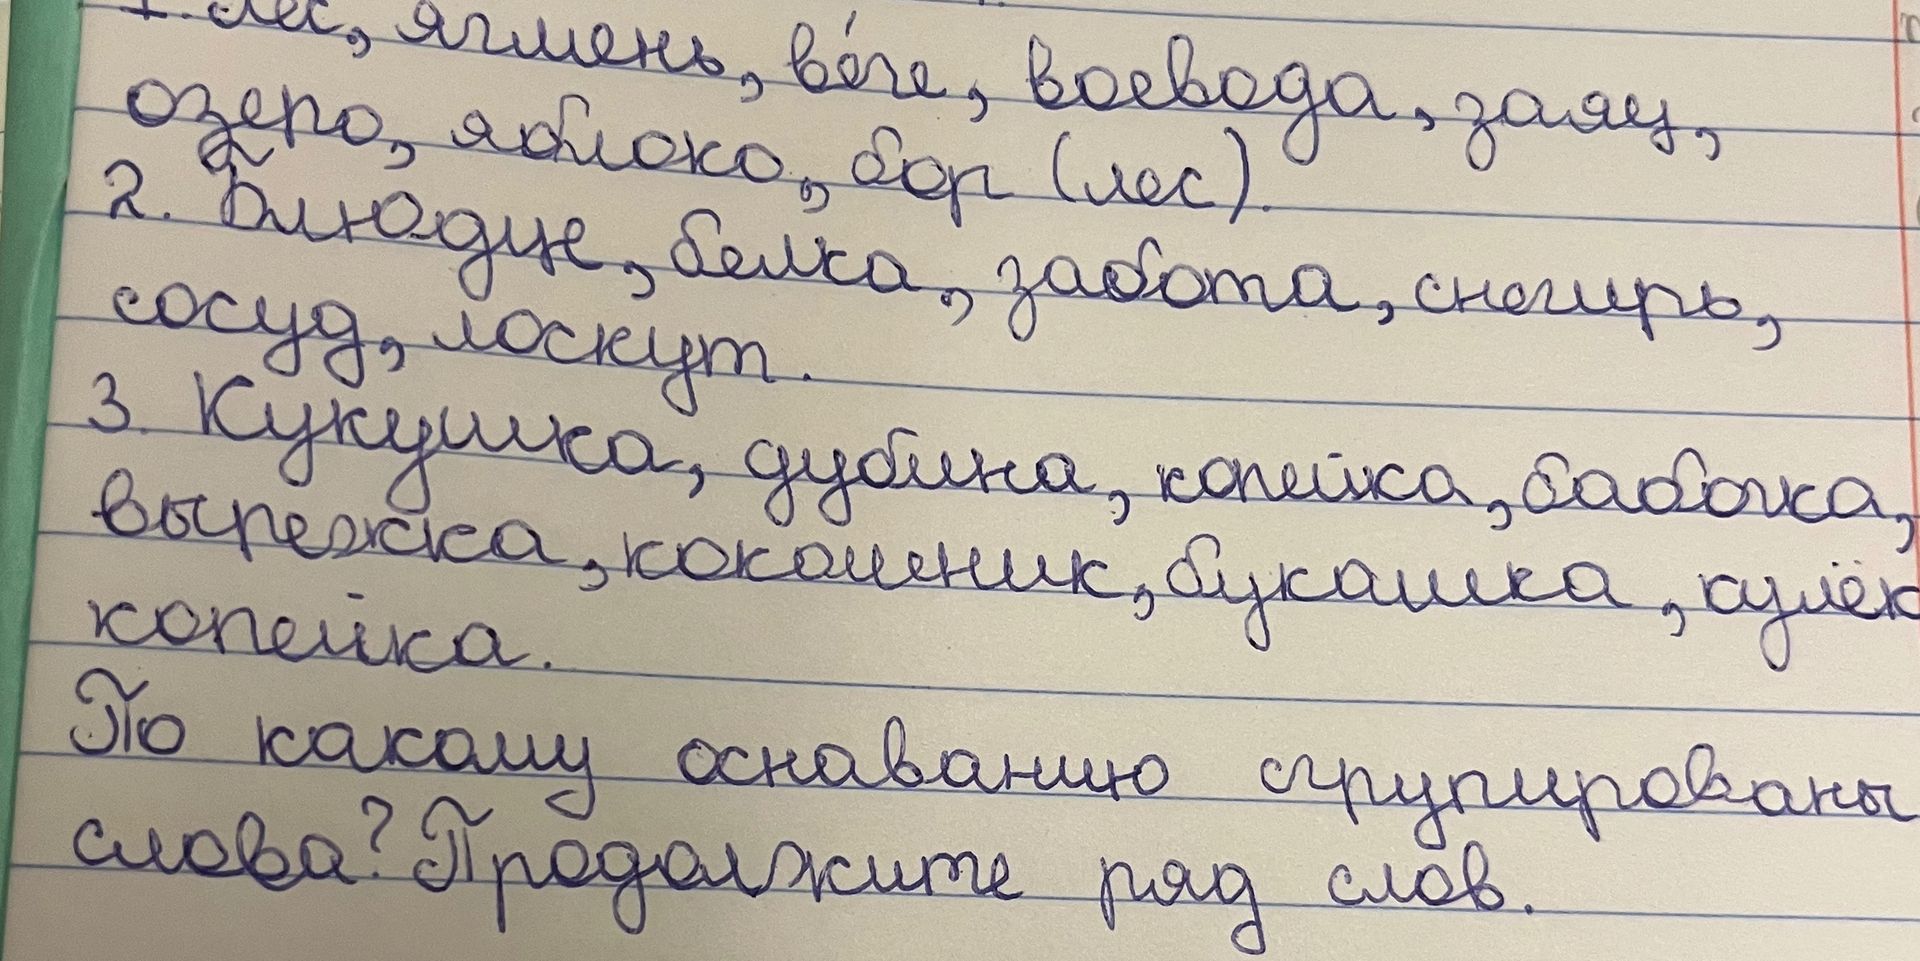 1. Лес, ячмень, ве́че, воевода, заяц,
озеро, яблоко, бор (лес).
2. Блюдце, белка, забота, снегирь,
сосуд, лоскут.
3. Кукушка, дубина, копейка, бабочка,
вырежка, кокошник, букашка, кулёк
копейка.
По какому основанию сгрупированы
слова? Продолжите ряд слов.